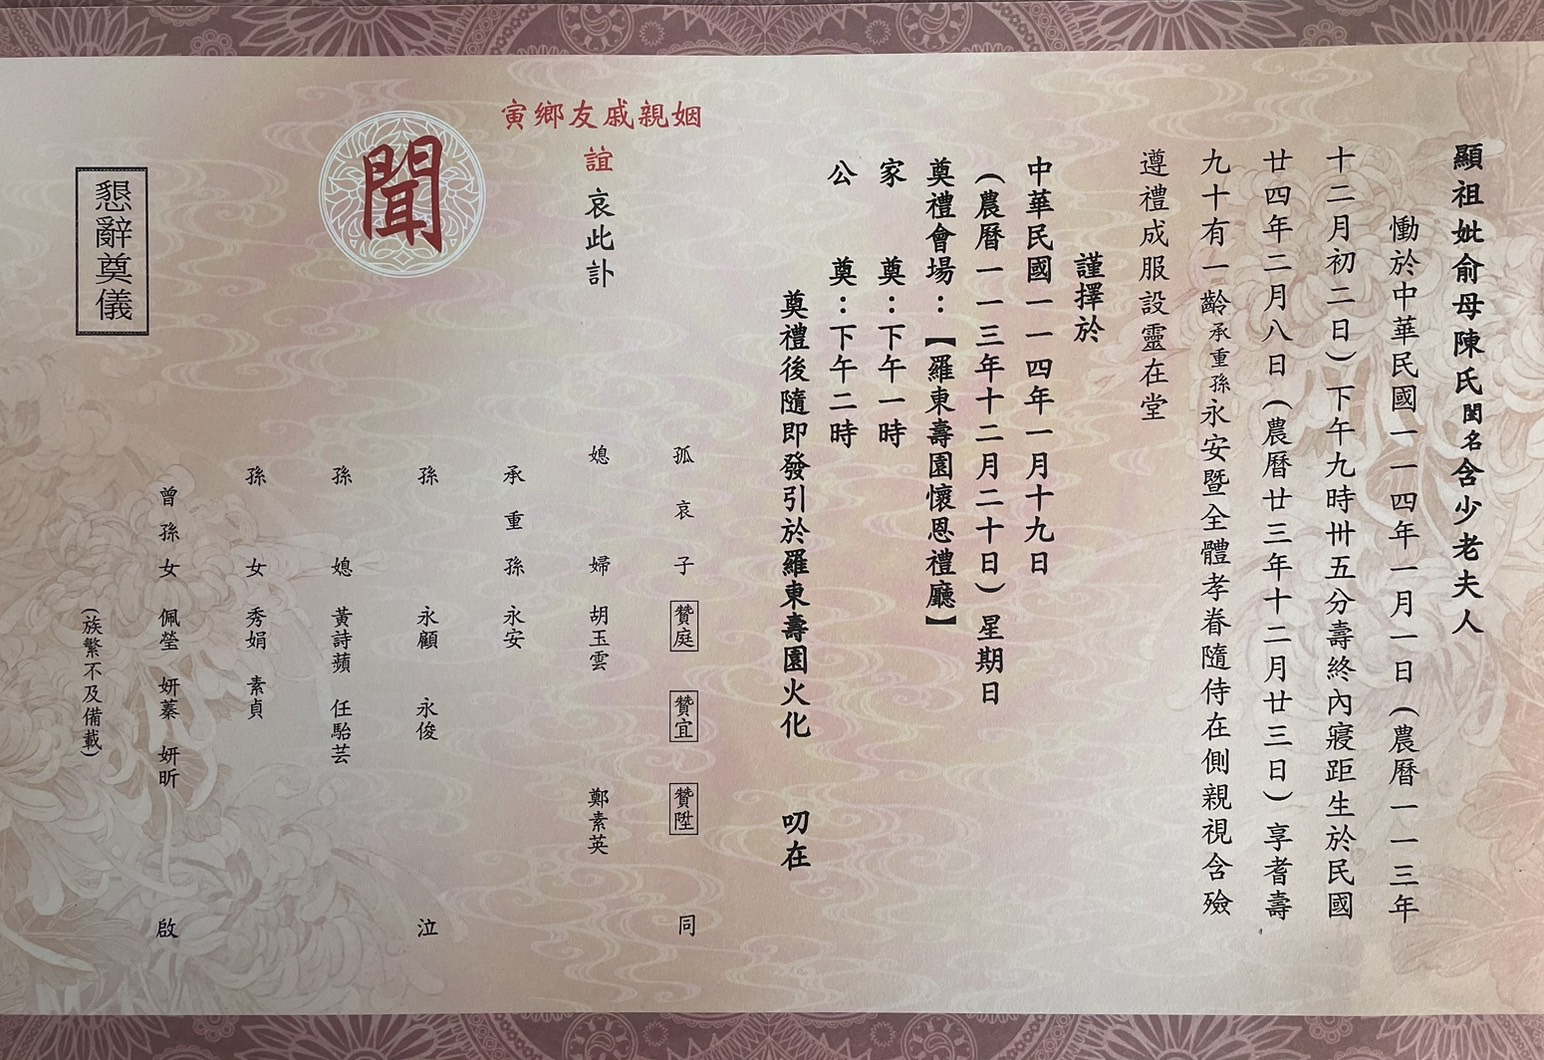 顯祖妣俞母陳氏閨名含少老夫人
慟於中華民國一一四年一月一日(農曆一一三年
十二月初二日)下午九時卅五分壽終內寢距生於民國
廿四年二月八日(農曆廿三年十二月廿三日)享耆壽
九十有一齡承重孫永安暨全體孝眷隨侍在側親視含殮
遵禮成服設靈在堂
謹擇於
中華民國一一四年一月十九日
(農曆一一三年十二月二十日)星期日
奠禮會場:【羅東壽園懷恩禮廳】
家奠:下午一時
公奠:下午二時
奠禮後隨即發引於羅東壽園火化 叨在
姻親戚友鄉寅
誼哀此訃
聞
孤哀子 贊庭 贊宜 贊陞 同
媳婦 胡玉雲 鄭素英
承重孫 永安
孫 永顧 永俊 泣
孫媳 黃詩蘋 任駘芸
孫女 秀娟 素貞
曾孫女 佩瑩 妍蓁 妍昕 啟
(族繁不及備載)
懇辭奠儀